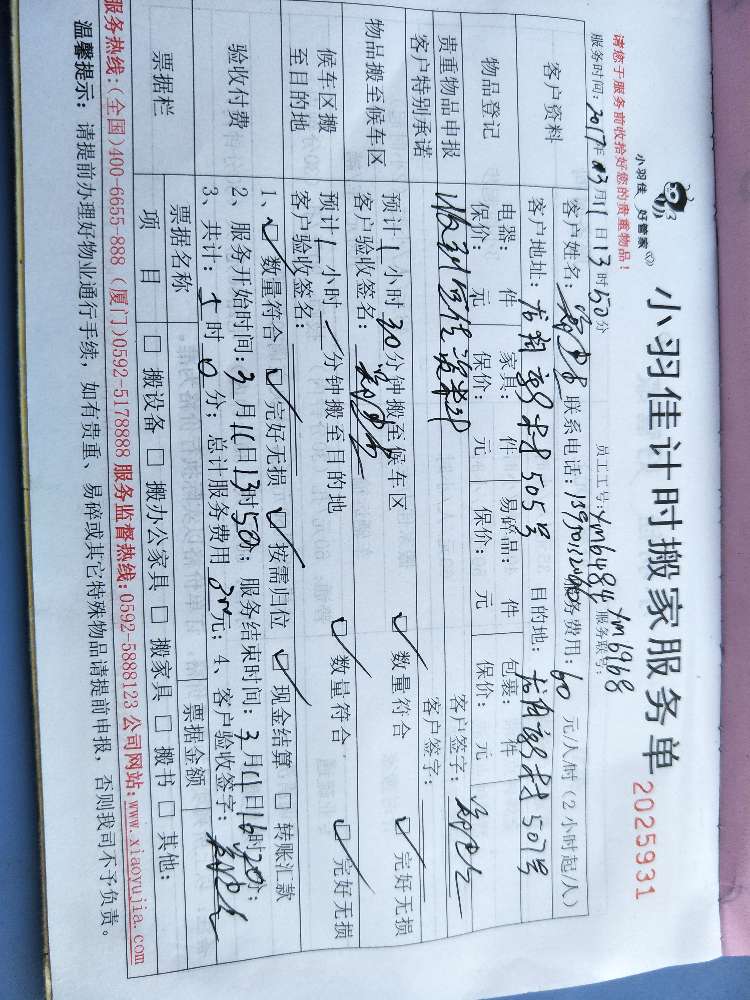 小羽佳 好管家
小羽佳计时搬家服务单
2025931
请您于服务前收拾好您的贵重物品！
员工工号：ym6484 ym6968
服务联号：
服务时间：2017年03月11日13时50分
客户资料
客户姓名： 联系电话： 服务费用：60元/人/时（2小时起/人）
客户地址： 新村505号 目的地： 新村507号
物品登记
电器： 件 家具： 件 易碎品： 件 包裹： 件
保价： 元 保价： 元 保价： 元 保价： 元
贵重物品申报
客户签字：
客户特别承诺
客户签字：
物品搬至候车区
预计1小时30分钟搬至候车区 数量符合 完好无损
客户验收签名：
候车区搬至目的地
预计1小时 分钟搬至目的地 数量符合 完好无损
客户验收签名：
验收付费
1、 数量符合 完好无损 按需归位 现金结算 转账汇款
2、服务开始时间：3月11日13时50分；服务结束时间：3月11日16时20分；
3、共计： 时0分；总计服务费用 元；4、客户验收签字：
票据栏
票据名称 票据金额
项目 搬设备 搬办公家具 搬家具 搬书 其他：
服务热线：(全国)400-6655-888 (厦门)0592-5178888 服务监督热线：0592-5888123 公司网站：www.xiaoyujia.com
温馨提示：请提前办理好物业通行手续，如有贵重、易碎或其它特殊物品请提前申报，否则我司不予负责。